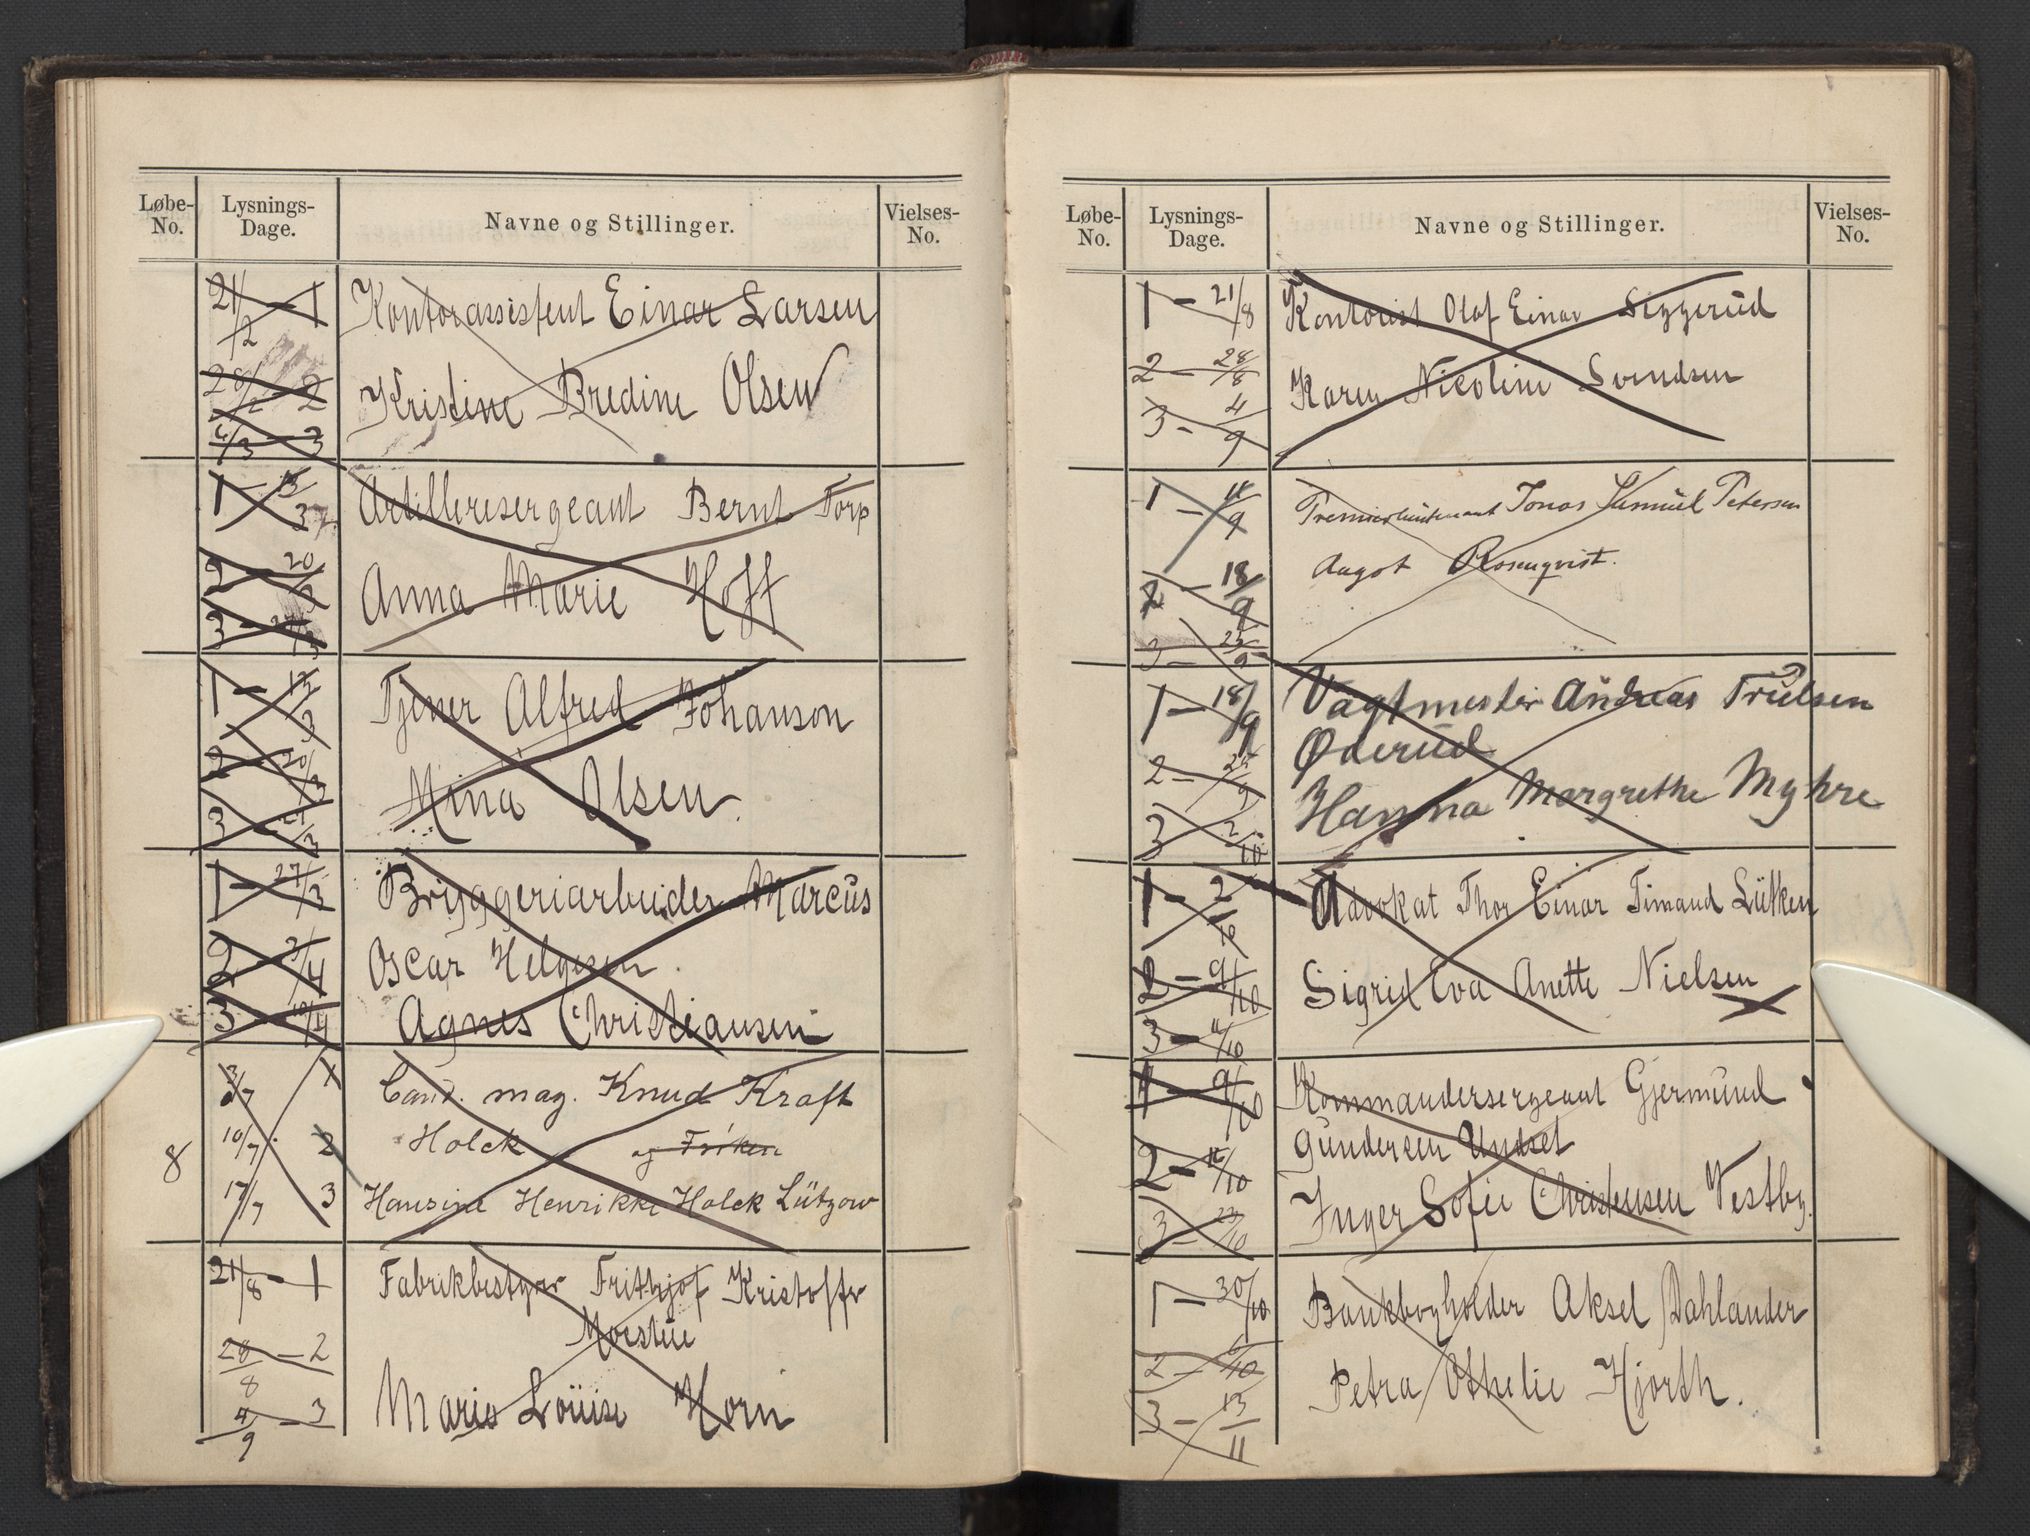 Løbe-No. Lysnings-Dage. Navne og Stillinger. Vielses-No.
21/2 - 1 Kontorassistent Einar Larsen
28/2 - 2 Kristine Bredine Olsen
6/3 - 3
1 - 13/3 Artillerisergeant Bernt Torp
2 - 20/3 Anna Marie Hoff
3 - 27/3
1 - 13/3 Tjener Alfred Johanson
2 - 20/3 Mina Olsen.
3 - 27/3
1 - 27/3 Bryggeriarbeider Marcus
2 - 3/4 Oscar Helgesen.
3 - 10/4 Agnes Christiansen
3/7 1 Cand. mag. Knud Kraft
8 10/7. 2 Holck og Frøken
17/7 3 Hansine Henrikke Holck Lützow
21/8 - 1 Fabrikbestyrer Frithjof Kristoffer
Moestue
28/8 - 2
4/9 - 3 Marie Louise Horn
Løbe-No. Lysnings-Dage. Navne og Stillinger. Vielses-No.
1 - 21/8 Kontorist Olaf Einar Seggerud
2 - 28/8 Karen Nicoline Svendsen
3 - 4/9
1 - 11/9 Premierløitenant Jonas Samuel Petersen
2 - 18/9 Aagot Rosenqvist.
3 - 25/9
1 - 18/9 Vagtmester Andreas Trulsen
Øderud
2 - 25/9 Hanna Margrethe Myhre
3 - 2/10
1 - 2/10 Advokat Thor Einar Timand Lütken
2 - 9/10 Sigrid Eva Anette Nielsen
3 - 16/10
1 - 9/10 Kommandersergeant Gjermund
Gundersen Undset
2 - 16/10 Inger Sofie Christensen Vestby.
3 - 23/10
1 - 30/10 Bankbogholder Aksel Dahlander
2 - 6/10 Petra Othelie Hjorth.
3 - 13/11